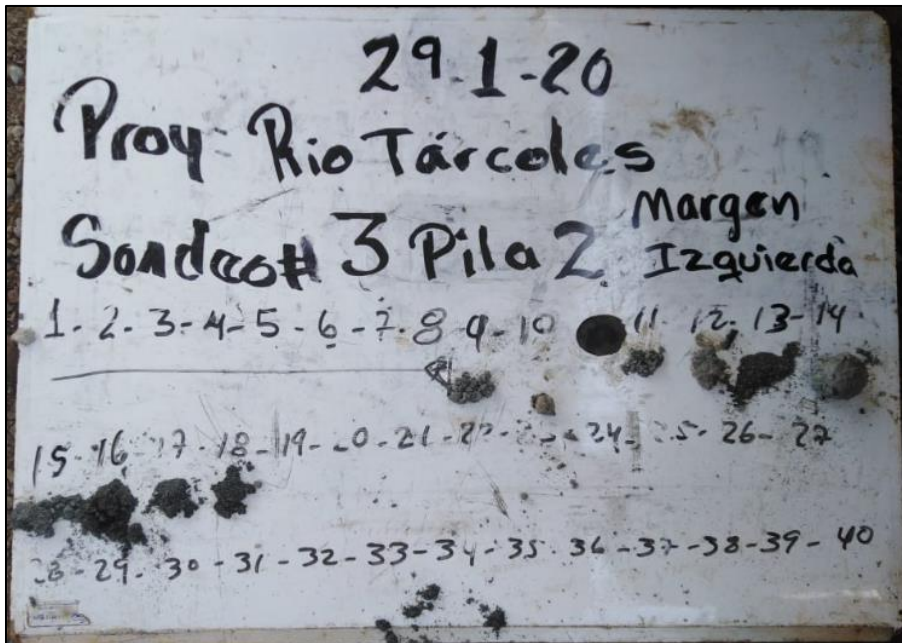 29-1-20
Proy- Rio Tárcoles
Sondeo# 3 Pila 2 Margen Izquierda
1-2-3-4-5-6-7-8-9-10 11-12-13-14
15-16-17-18-19-20-21-22- -24- -26-27
-29-30-31-32-33-34-35-36-37-38-39-40